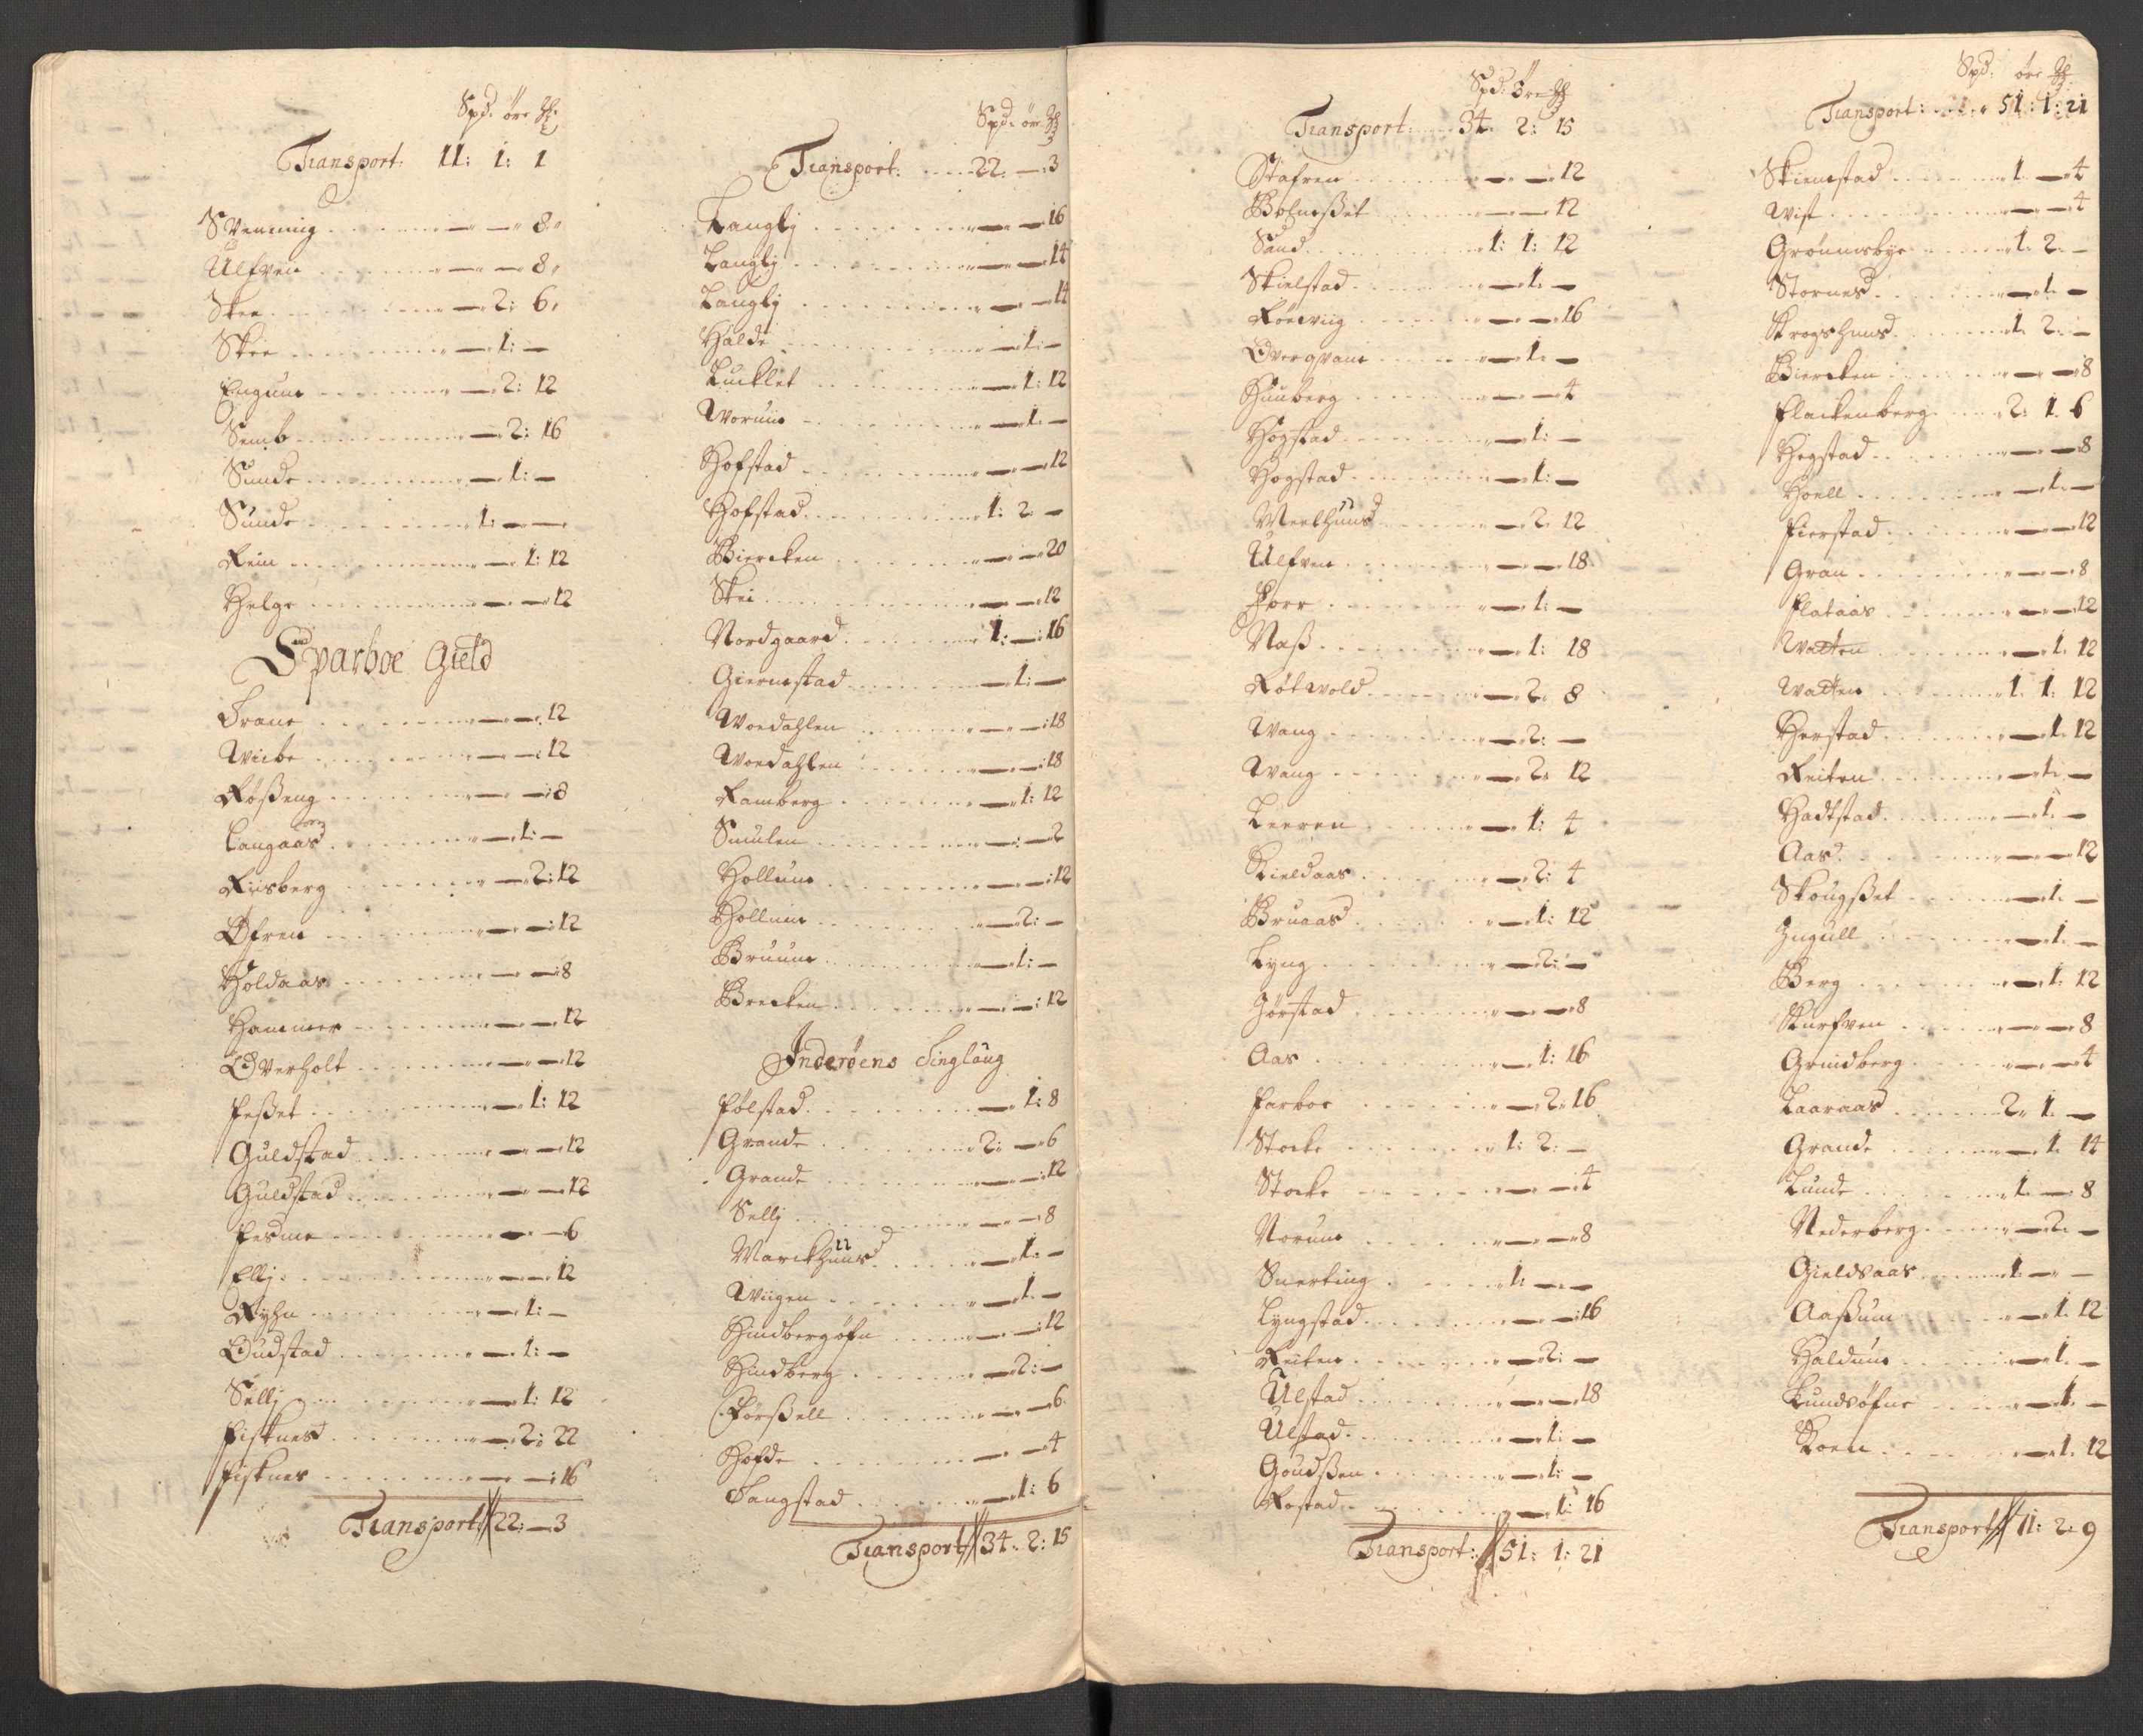 Spd. öre
Transport: 11: 1: 1
Svenning — — 8
Ulfven — — 8
Skee — 2: 6
Skee — 1: —
Engum — 2: 12
Semb — 2: 16
Sunde — 1: —
Sunde 1: — —
Rein — 1: 12
Helge — — 12
Sparboe Gield
Trane — — 12
Wiibe — — 12
Rößeng — — 8
Langaas — 1: —
Riisberg — 2: 12
Øfren — — 12
Holdaas — — 8
Hammer — — 12
Overholt — — 12
Feßet — 1: 12
Guldstad — — 12
Guldstad — — 12
Fesme — — 6
Ellj — — 12
Ryhn — 1: —
Oudstad — 1: —
Sellj — 1: 12
Fisknes — 2: 22
Fisknes — — 16
Transport 22: — 3
Spd. öre
Transport: 22. — 3
Langlj — — 16
Langlj — — 14
Langlj — — 14
Halde — 1: —
Lucklet — 1: 12
Worum — 1. —
Hofstad — — 12
Hofstad 1: 2. —
Biercken — — 20
Skei — — 12
Nordgaard 1: — 16
Giermstad — 1: —
Woedahlen — — 18
Woedahlen — — 18
Ramberg — 1: 12
Smulen — — 2
Hollum — — 12
Hollum — 2: —
Bruum — 1: —
Brecken — — 12
Inderöens Tinglaug
Følstad — 1: 8
Grande 2: — 6
Grande — — 12
Sellj — — 8
Marckhuus — 1: —
Wiigen — 1: —
Hindbergöfn — — 12
Hindberg — 2: —
Förßell — — 6
Hofde — — 4
Langstad — 1: 6
Transport 34: 2: 15
Spd. öre
Transport: 34. 2: 15
Stafren — — 12
Bolneßet — — 12
Sand 1: 1: 12
Skielstad — 1: —
Röeswiig — — 16
Overqvam — 1: —
Huuberg — — 4
Högstad — 1: —
Hogstad — 1: —
Meelhuus — 2. 12
Ulfven — — 18
Porr — 1: —
Naß — 1: 18
Rötwold — 2. 8
Wang — 2: —
Wang — 2: 12
Leeren — 1: 4
Kieldaas — 2: 4
Bruaas — 1: 12
Lyng — 2: —
Jörstad — — 8
Aas — 1: 16
Farboe — 2. 16
Stocke 1: 2: —
Stocke — — 4
Norum — — 8
Snerting 1: — —
Lyngstad — — 16
Reiten — 2: —
Ulstad — — 18
Ulstad — 1: —
Goudßen — 1: —
Rostad — 1: 16
Transport: 51: 1: 21
Spd. öre
Transport: 51: 1: 21
Skiemstad 1. — 4
Wist — — 4
Grönnesbye 1. 2. —
Stornes — 1. —
Krogshuus 1. 2. —
Biercken — — 8
Flackenberg 2: 1. 6
Hegstad — — 8
Hoell — 1. —
Fierstad — — 12
Gran — — 8
Flataas — — 12
Watten — 1. 12
Watten 1. 1: 12
Herstad — 1. 12
Reiten — 1. —
Hadtstad — 1. —
Aas — — 12
Skougßet — 1. —
Ingull — 1. —
Berg — 1. 12
Skurfven — — 8
Grindberg — — 4
Laaraas 2. 1. —
Grande — 1. 14
Lunde 1. — 8
Nederberg — 2. —
Gieldsaas 1. — —
Aaßum — 1. 12
Haldum — 1. —
Kundsöfne — 1. —
Roen — 1. 12
Transport 71: 2: 9